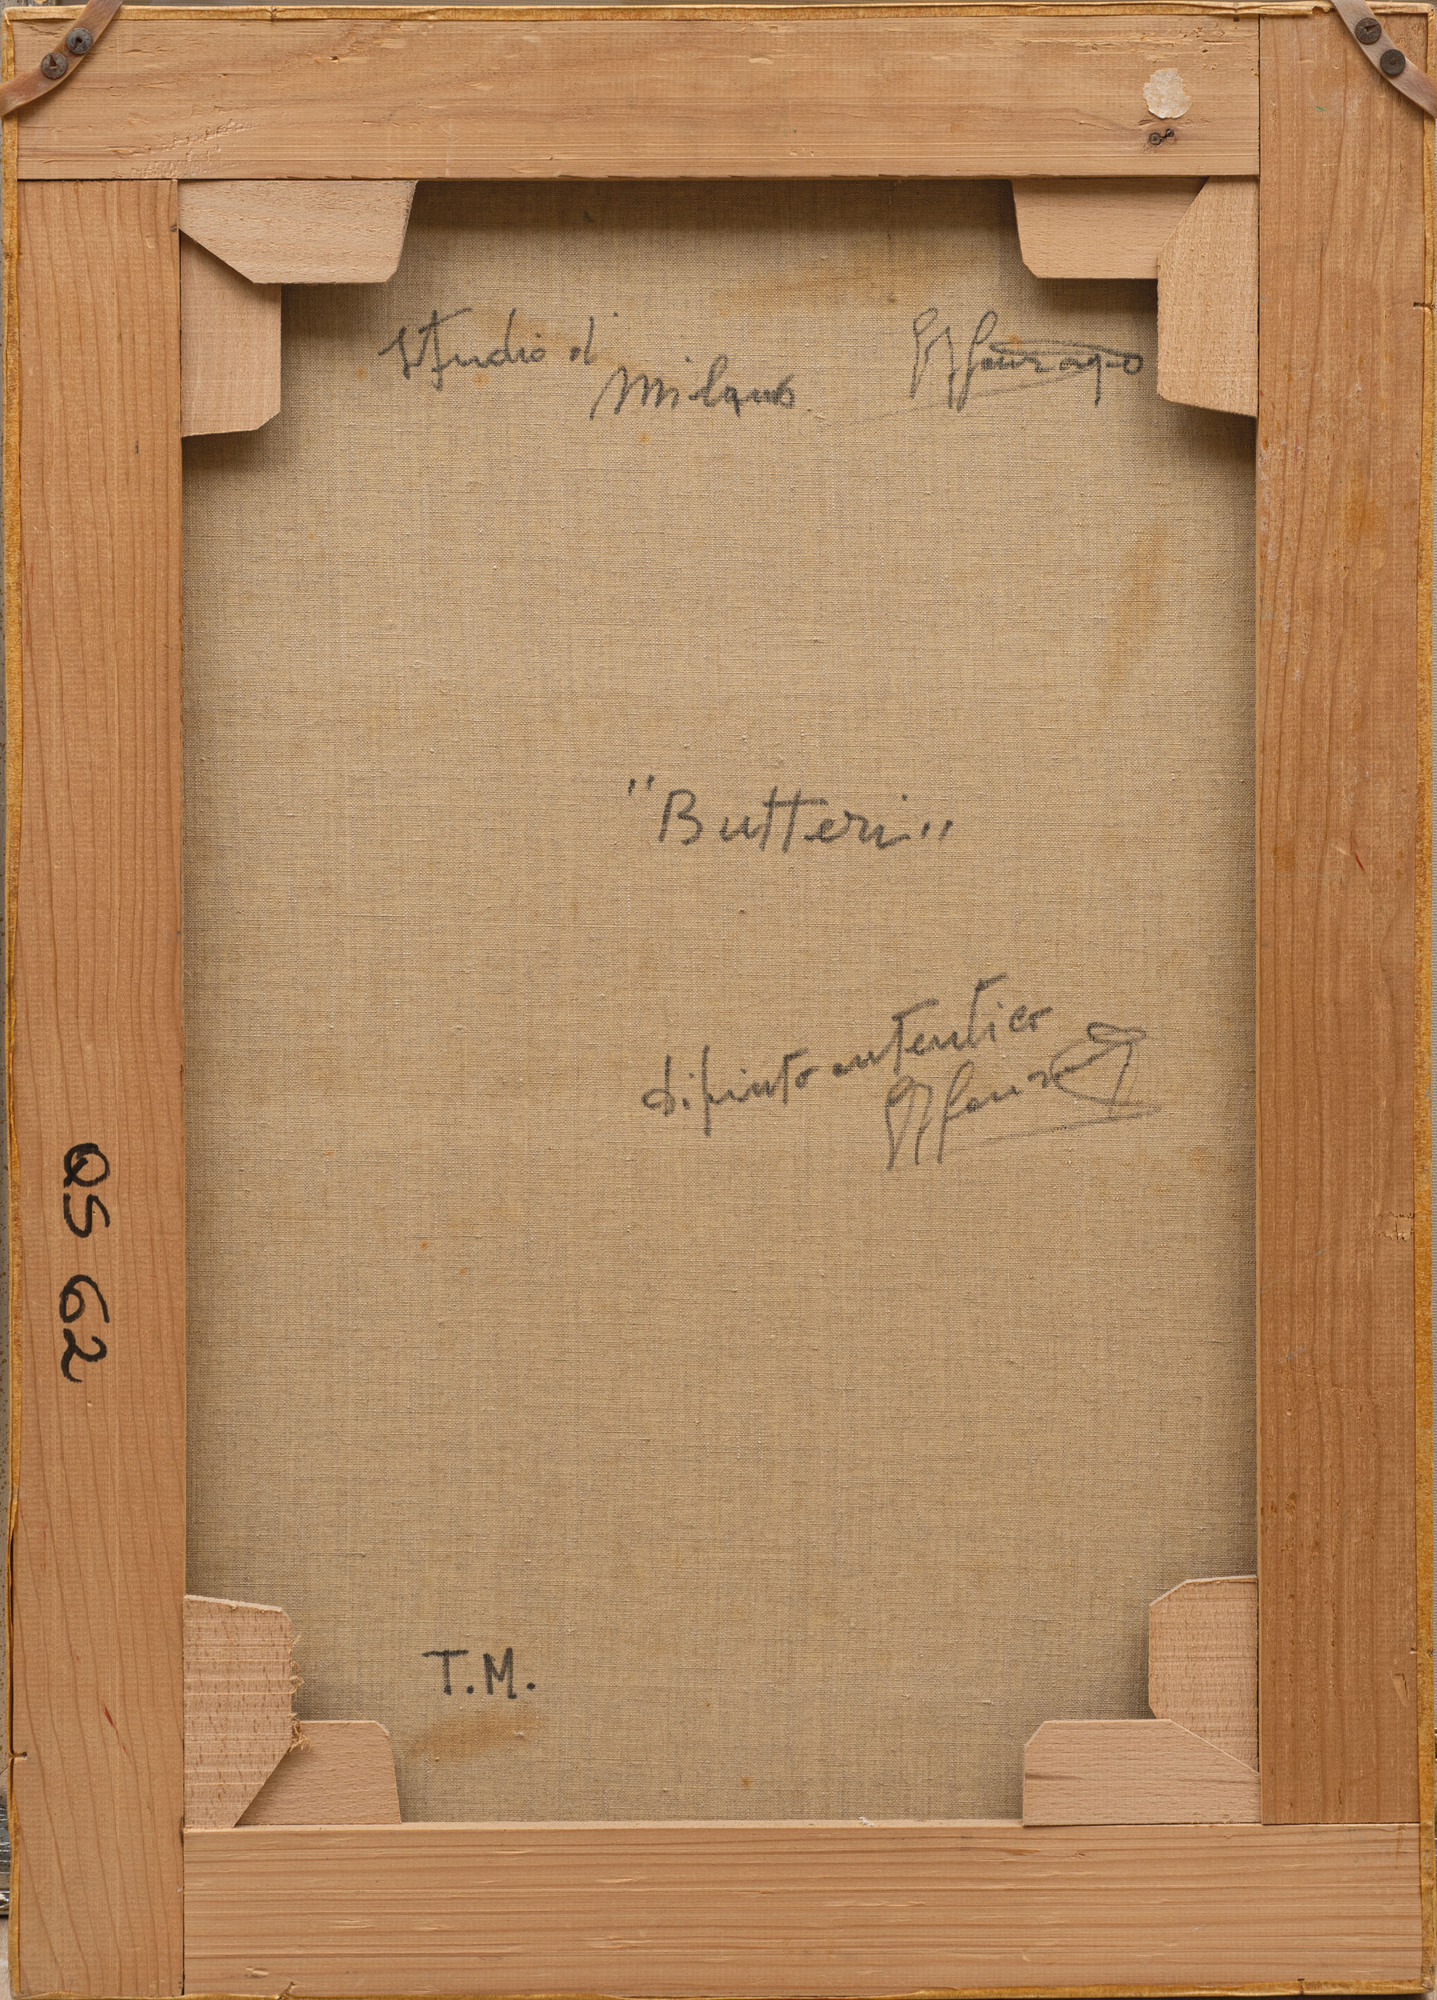 Studio di
Milano
"Butteri"
dipinto autentico
QS 62
T.M.